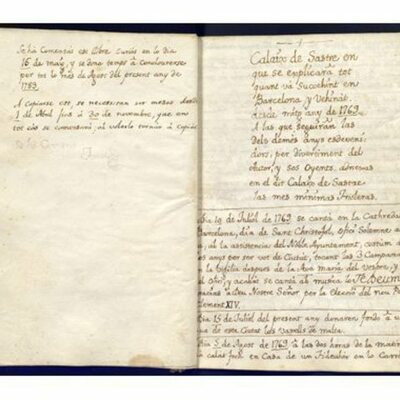 Se ha Comensat est llibre curiós en lo dia
16 de maig, y se dona temps á Conclourerse
per tot lo més de Agost del present any de
1783.
A Copiarse est, se necesitan ser mesos
1 de Abril fins á 30 de novembre, que en
tot eix se comensará, al volerlo tornar á Copiar
Calaix de Sastre en
que se explicará tot
quant va Succehint en
Barcelona, y Vehinat
desde mitg any de 1769.
A las que seguiran las
dels demés anys esdeveni-
dors, per divertiment del
Autor, y ses Oyents, adnexas
en el dit Calaix de Sastre
las mes minimas Frioleras.
Dia 10 de Juliol de 1769 se cantá en la Cathedral
Barcelona, dia de Sant Christofol, Ofici Solemne
ab la assistencia del Noble Ajuntament, custum
anys per ser vot de Ciutat, tocant las 3 Campanas
la vigilia despues de la Ave maria del vespre, y
Ofici, y acabat se cantá ab musica lo Te Deum
á Deu Nostre Señor per la Elecció del nou
Clement XIV.
Dia 15 de Juliol del present any donaren fondo á
de esta Ciutat los Vaxells de malta.
Dia 5 de Agost de 1769 á las dos horas de la
calás foch en Casa de un Fideuher en lo